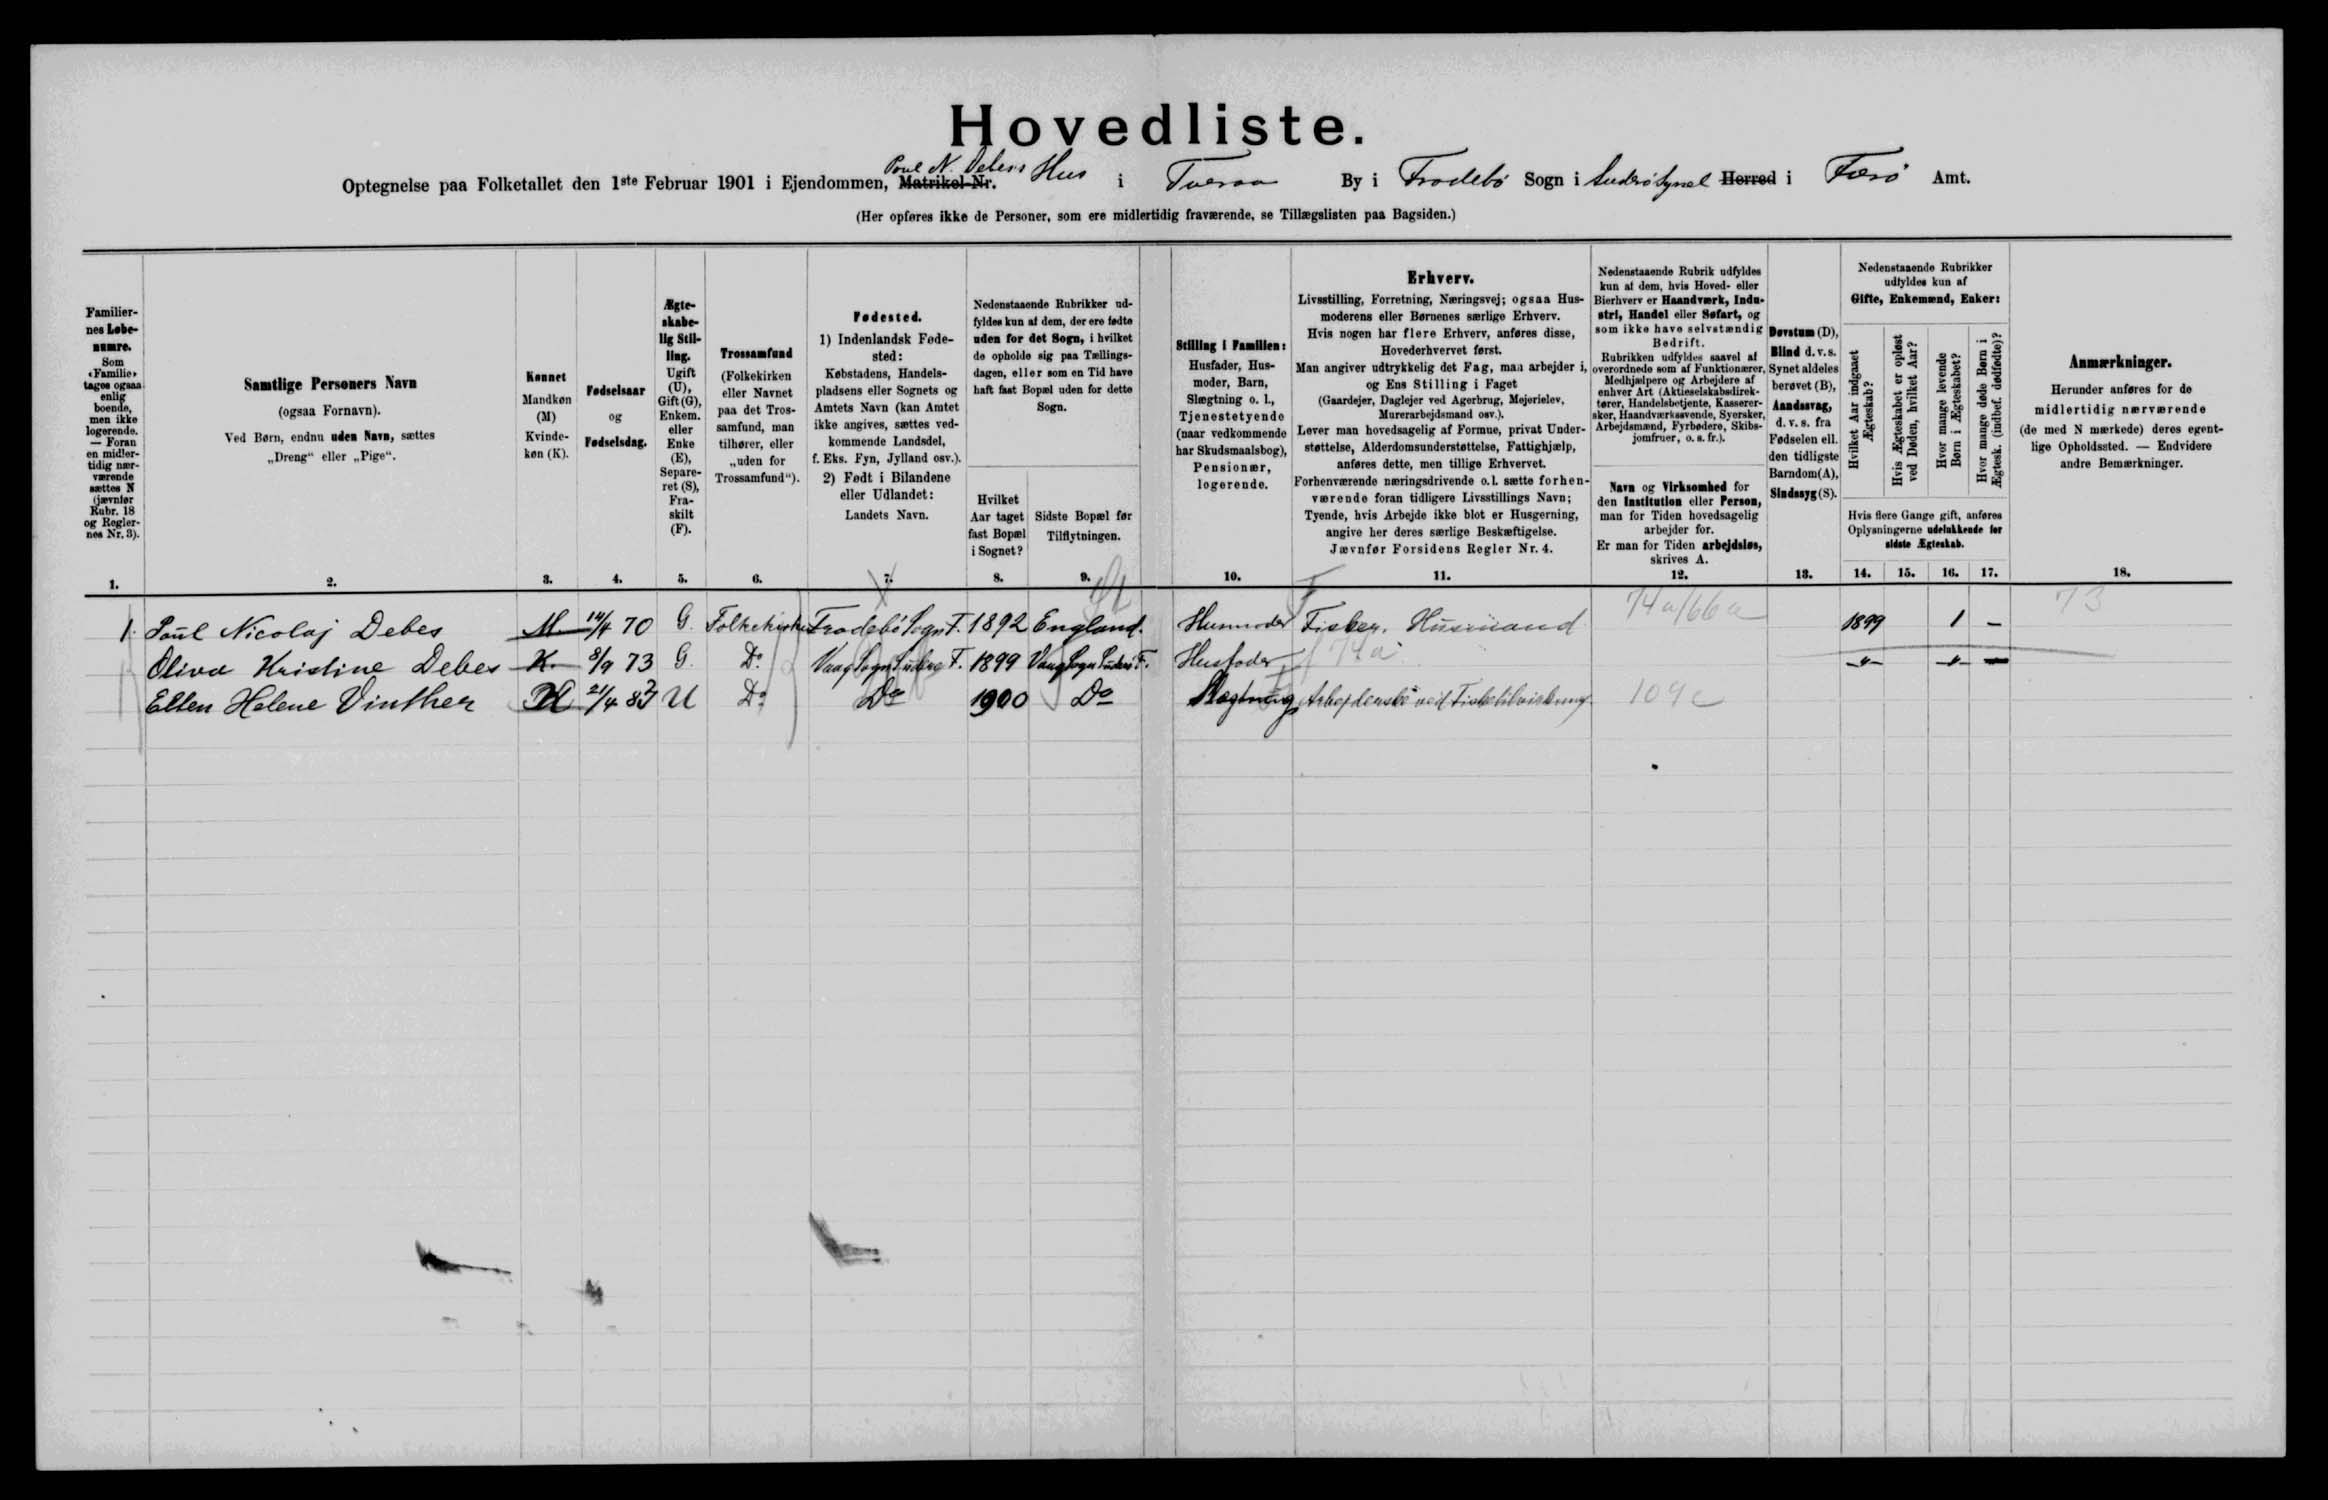 Hovedliste.
Poul N. Debes Hus
Optegnelse paa Folketallet den 1ste Februar 1901 i Ejendommen, Matrikel-Nr. i Tveraa By i Frodebö Sogn i Suderö Syssel Herred i Færö Amt.
(Her opføres ikke de Personer, som ere midlertidig fraværende, se Tillægslisten paa Bagsiden.)
Familier-
nes Løbe-
numre.
Som
«Familie»
tages ogsaa
enlig
boende,
men ikke
logerende.
— Foran
en midler-
tidig nær-
værende
sættes N
(jævnfør
Rubr. 18
og Regler-
nes Nr. 3).
1.
Samtlige Personers Navn
(ogsaa Fornavn).
Ved Børn, endnu uden Navn, sættes
„Dreng“ eller „Pige“.
2.
Kønnet
Mandkøn
(M)
Kvinde-
køn (K).
3.
Fødselsaar
og
Fødselsdag.
4.
Ægte-
skabe-
lig Stil-
ling.
Ugift
(U),
Gift (G),
Enkem.
eller
Enke
(E),
Separe-
ret (S),
Fra-
skilt
(F).
5.
Trossamfund
(Folkekirken
eller Navnet
paa det Tros-
samfund, man
tilhører, eller
„uden for
Trossamfund“).
6.
Fødested.
1) Indenlandsk Føde-
sted:
Købstadens, Handels-
pladsens eller Sognets og
Amtets Navn (kan Amtet
ikke angives, sættes ved-
kommende Landsdel,
f. Eks. Fyn, Jylland osv.).
2) Født i Bilandene
eller Udlandet:
Landets Navn.
7.
Nedenstaaende Rubrikker ud-
fyldes kun af dem, der ere fødte
uden for det Sogn, i hvilket
de opholde sig paa Tællings-
dagen, eller som en Tid have
haft fast Bopæl uden for dette
Sogn.
Hvilket
Aar taget
fast Bopæl
i Sognet?
8.
Sidste Bopæl før
Tilflytningen.
9.
Stilling i Familien:
Husfader, Hus-
moder, Barn,
Slægtning o. l.,
Tjenestetyende
(naar vedkommende
har Skudsmaalsbog),
Pensionær,
logerende.
10.
Erhverv.
Livsstilling, Forretning, Næringsvej; ogsaa Hus-
moderens eller Børnenes særlige Erhverv.
Hvis nogen har flere Erhverv, anføres disse,
Hovederhvervet først.
Man angiver udtrykkelig det Fag, man arbejder i,
og Ens Stilling i Faget
(Gaardejer, Daglejer ved Agerbrug, Mejerielev,
Murerarbejdsmand osv.).
Lever man hovedsagelig af Formue, privat Under-
støttelse, Alderdomsunderstøttelse, Fattighjælp,
anføres dette, men tillige Erhvervet.
Forhenværende næringsdrivende o. l. sætte forhen-
værende foran tidligere Livsstillings Navn;
Tyende, hvis Arbejde ikke blot er Husgerning,
angive her deres særlige Beskæftigelse.
Jævnfør Forsidens Regler Nr. 4.
11.
Nedenstaaende Rubrik udfyldes
kun af dem, hvis Hoved- eller
Bierhverv er Haandværk, Indu-
stri, Handel eller Søfart, og
som ikke have selvstændig
Bedrift.
Rubrikken udfyldes saavel af
overordnede som af Funktionærer,
Medhjælpere og Arbejdere af
enhver Art (Aktieselskabsdirek-
tører, Handelsbetjente, Kasserer-
sker, Haandværkssvende, Syersker,
Arbejdsmænd, Fyrbødere, Skibs-
jomfruer, o. s. fr.).
Navn og Virksomhed for
den Institution eller Person,
man for Tiden hovedsagelig
arbejder for.
Er man for Tiden arbejdsløs,
skrives A.
12.
Døvstum (D),
Blind d. v. s.
Synet aldeles
berøvet (B),
Aandssvag,
d. v. s. fra
Fødselen ell.
den tidligste
Barndom (A),
Sindssyg (S).
13.
Nedenstaaende Rubrikker
udfyldes kun af
Gifte, Enkemænd, Enker:
Hvilket Aar indgaaet
Ægteskab?
Hvis Ægteskabet er opløst
ved Døden, hvilket Aar?
Hvor mange levende
Børn i Ægteskabet?
Hvor mange døde Børn i
Ægtesk. (indbef. dødfødte)?
Hvis flere Gange gift, anføres
Oplysningerne udelukkende for
sidste Ægteskab.
14. 15. 16. 17.
Anmærkninger.
Herunder anføres for de
midlertidig nærværende
(de med N mærkede) deres egent-
lige Opholdssted. — Endvidere
andre Bemærkninger.
18.
1. Poul Nicolaj Debes M 14/4 70 G. Folkekirke Frodebö Sogn F. 1892 England. Husmoder Fisker. Husmand 74a/66a 1899 1 – 73
Oliva Kristine Debes K. 8/9 73 G. Do. Vaag Sogn Suderö F. 1899 Vaag Sogn Suderö F. Husfader 74a –"– –"– –
Ellen Helene Vinther K 21/4 83 U Do. Do 1900 Do Slægtning Arbejderske ved Fisketilvirkning. 109c